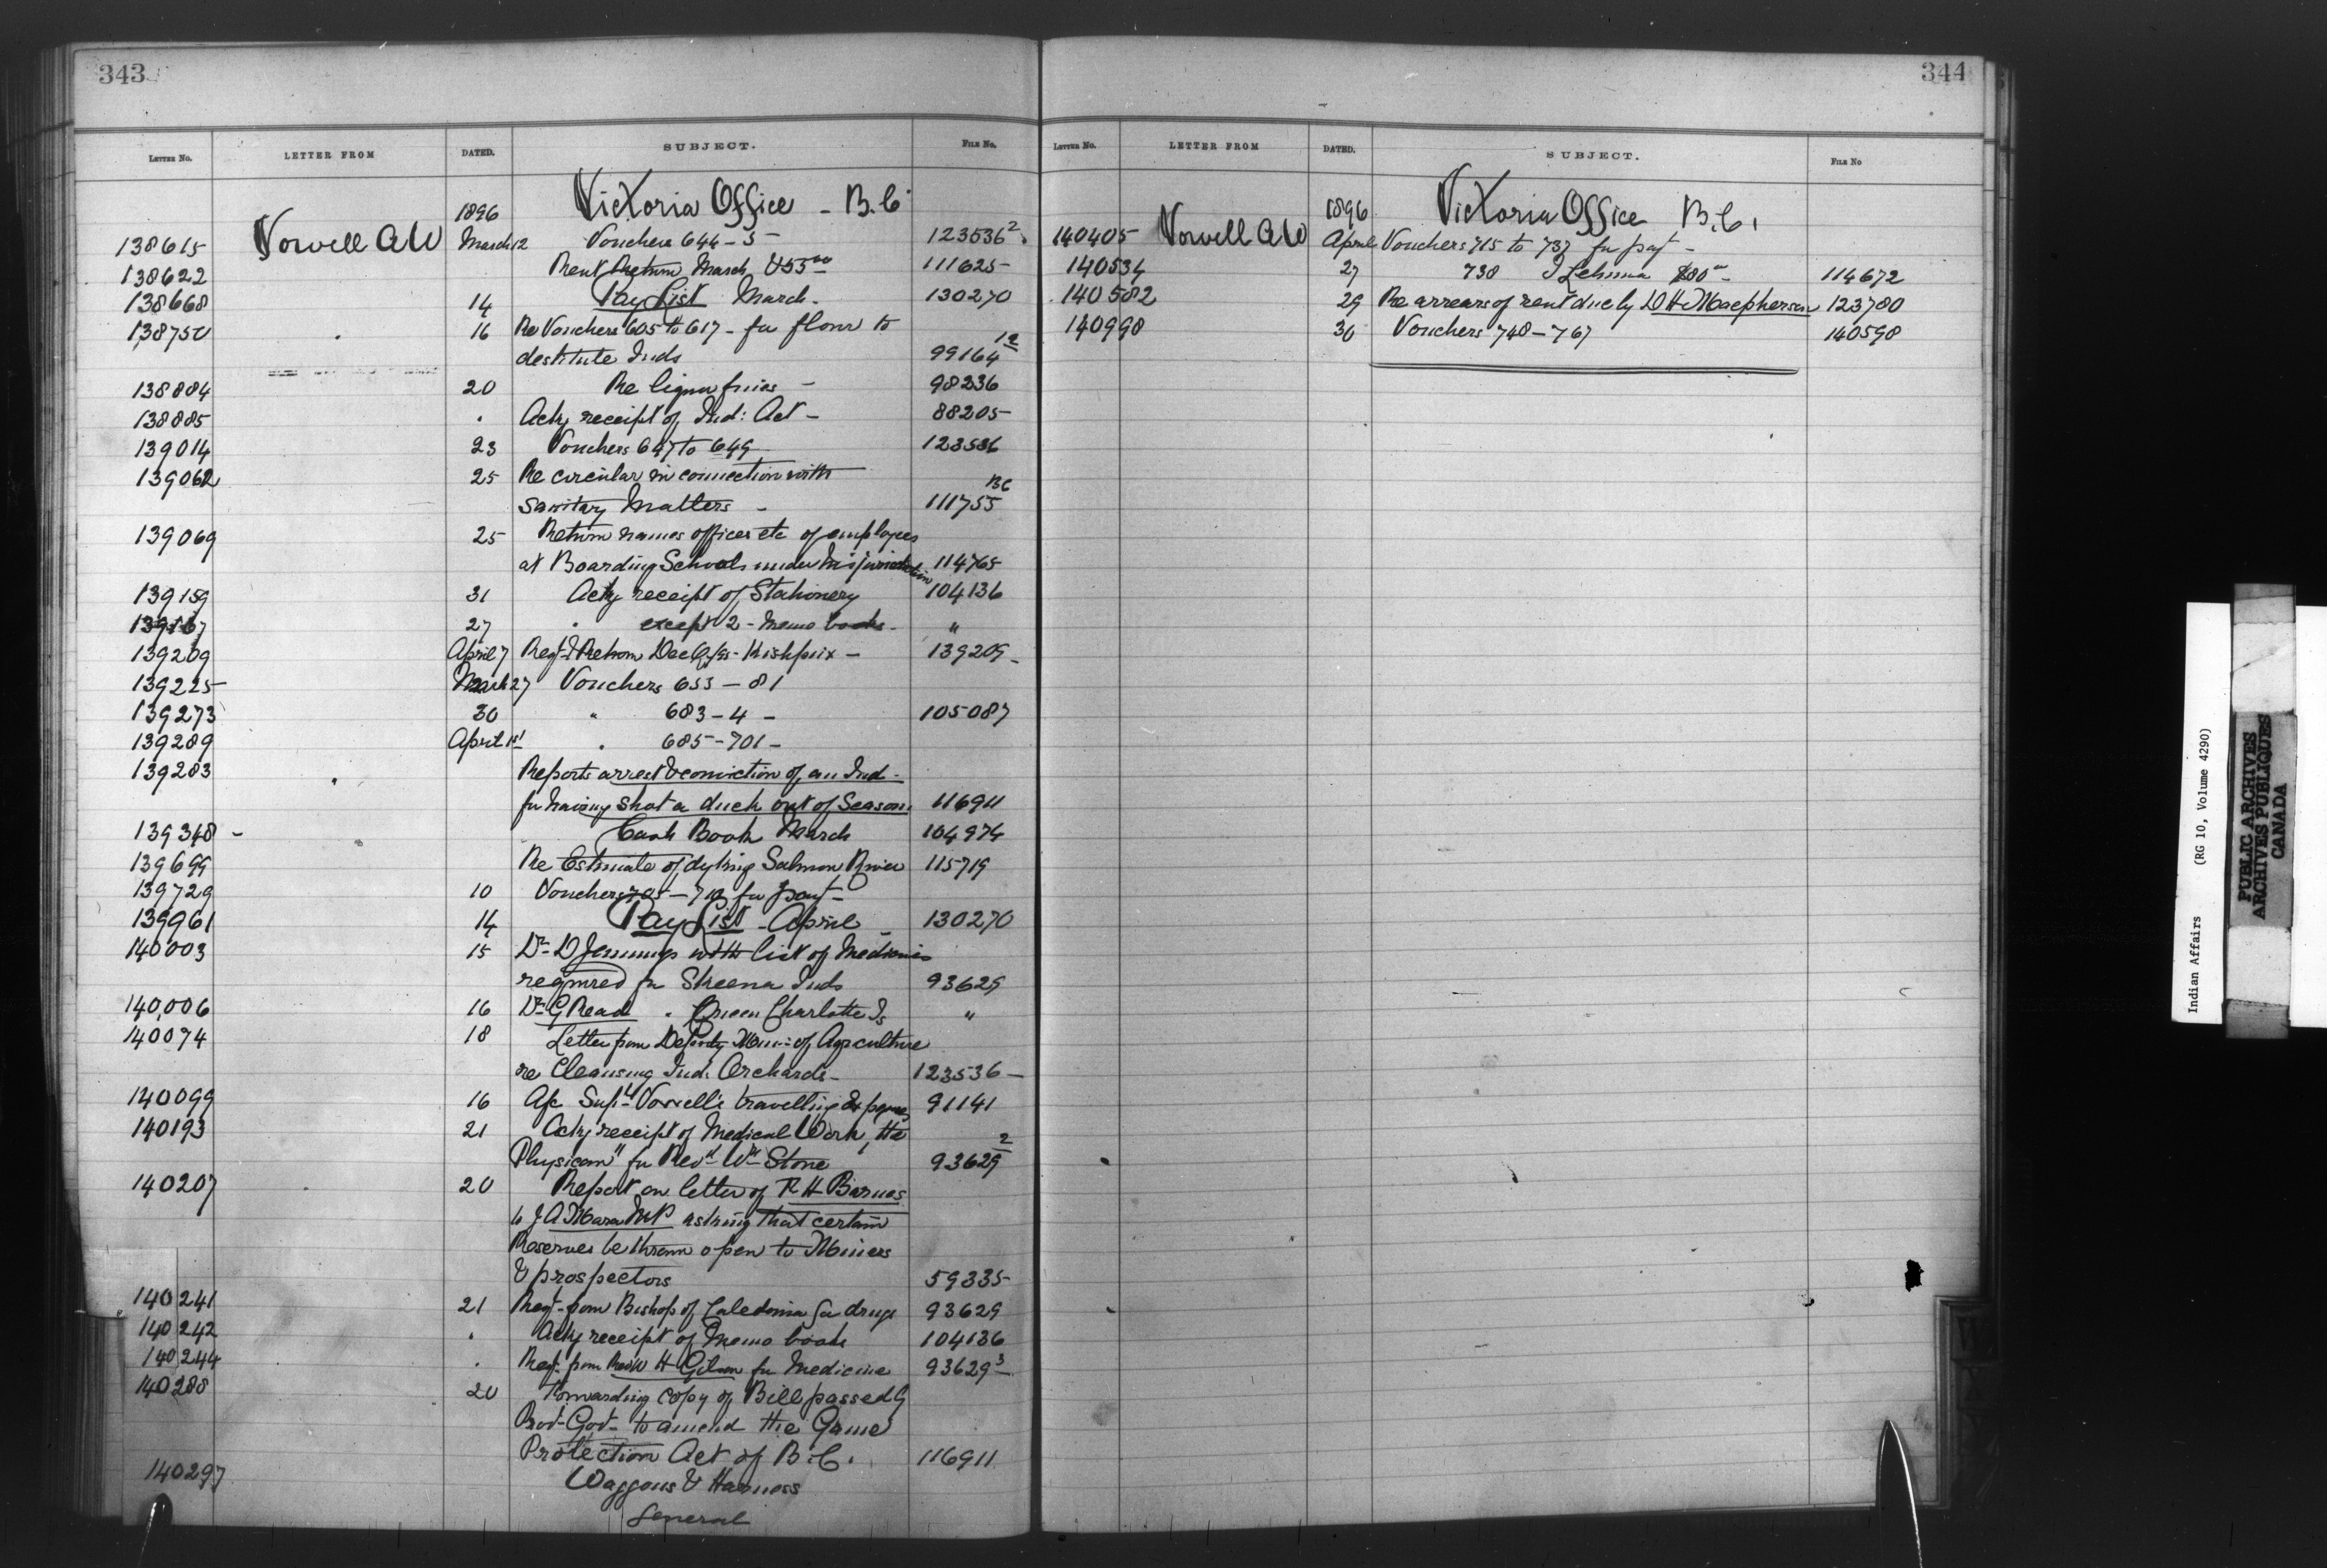 343
LETTER No. LETTER FROM DATED. SUBJECT. FILE No.
1896 Victoria Office - B.C.
138615 Vowell AW March 12 Vouchers 644-5- 123536²
138622 Rent Return March $55.00 111625-
138668 14 Pay List March - 130270
138750 16 Re Vouchers 605 to 617 - for flour to
destitute Inds 99164 12
138804 20 Re liquor fines - 98236
138885 . Ackg receipt of Ind: Act - 88205-
139014 23 Vouchers 647 to 649 123536
139062 25 Re circular in connection with
Sanitary Matters - 111755 BC
139069 25 Return names offices etc of employees
at Boarding Schools under his jurisdiction 114765
139159 31 Ackg receipt of Stationery 104136
139167 27 " except 2 - Memo books - "
139209 April 7 Regt & Return Dec Kishpiix - 139209-
139225 March 27 Vouchers 653 - 81
139273 30 " 683 - 4 - 105087
139289 April 1st " 685 - 701 -
139283 Reports arrest & conviction of an Ind -
for having shot a duck out of Season 116911
139348 - Cash Book March 104974
139699 Re Estimate of dyking Salmon River 115719
139729 10 Vouchers 705 - 712 for payt -
139961 14 Pay List - April - 130270
140003 15 Dr. D Jennings with list of Medicines
required for Skeena Inds 93629
140,006 16 Dr. G Read " Queen Charlotte Is "
140074 18 Letter from Deputy Min: of Agriculture
re Cleansing Ind. Orchards - 123536 -
140099 16 A/c Supt Vowell's travelling Expenses 91141
140193 21 Ackg receipt of Medical Work, "the
Physician" for Revd Wm Stone 93629 2
140207 20 Report on letter of R H Barnes
to J A Mara MP asking that certain
Reserves be thrown open to Miners
& prospectors 59335-
140241 21 Reqt - from Bishop of Caledonia for drugs 93629
140242 . Ackg receipt of Memo book 104136
140244 . Reqt. from Rev W H for Medicine 93629³
140288 20 Forwarding copy of Bill passed by
Prov- Govt - to amend the Game
Protection Act of B.C. 116911
140297 Waggons & Harness
General
344
LETTER No. LETTER FROM DATED. SUBJECT. FILE No
1896 Victoria Office B.C.
140405 Vowell AW April Vouchers 715 to 737 for payt -
140534 27 738 J Lehman $80 - 114672
140582 29 Re arrears of rent due by D H Macpherson 123780
140998 30 Vouchers 748 - 767 140598
Indian Affairs (RG 10, Volume 4290)
PUBLIC ARCHIVES
ARCHIVES PUBLIQUES
CANADA